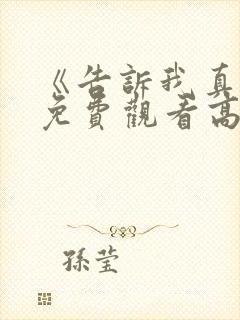 《告訴我真
免費觀看高
孫莹